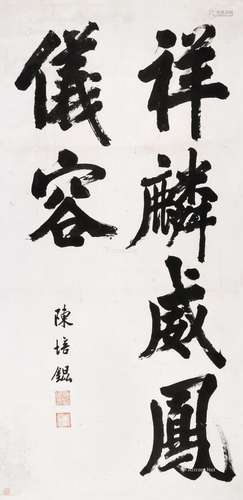 祥麟威鳳
儀容
陳培錕